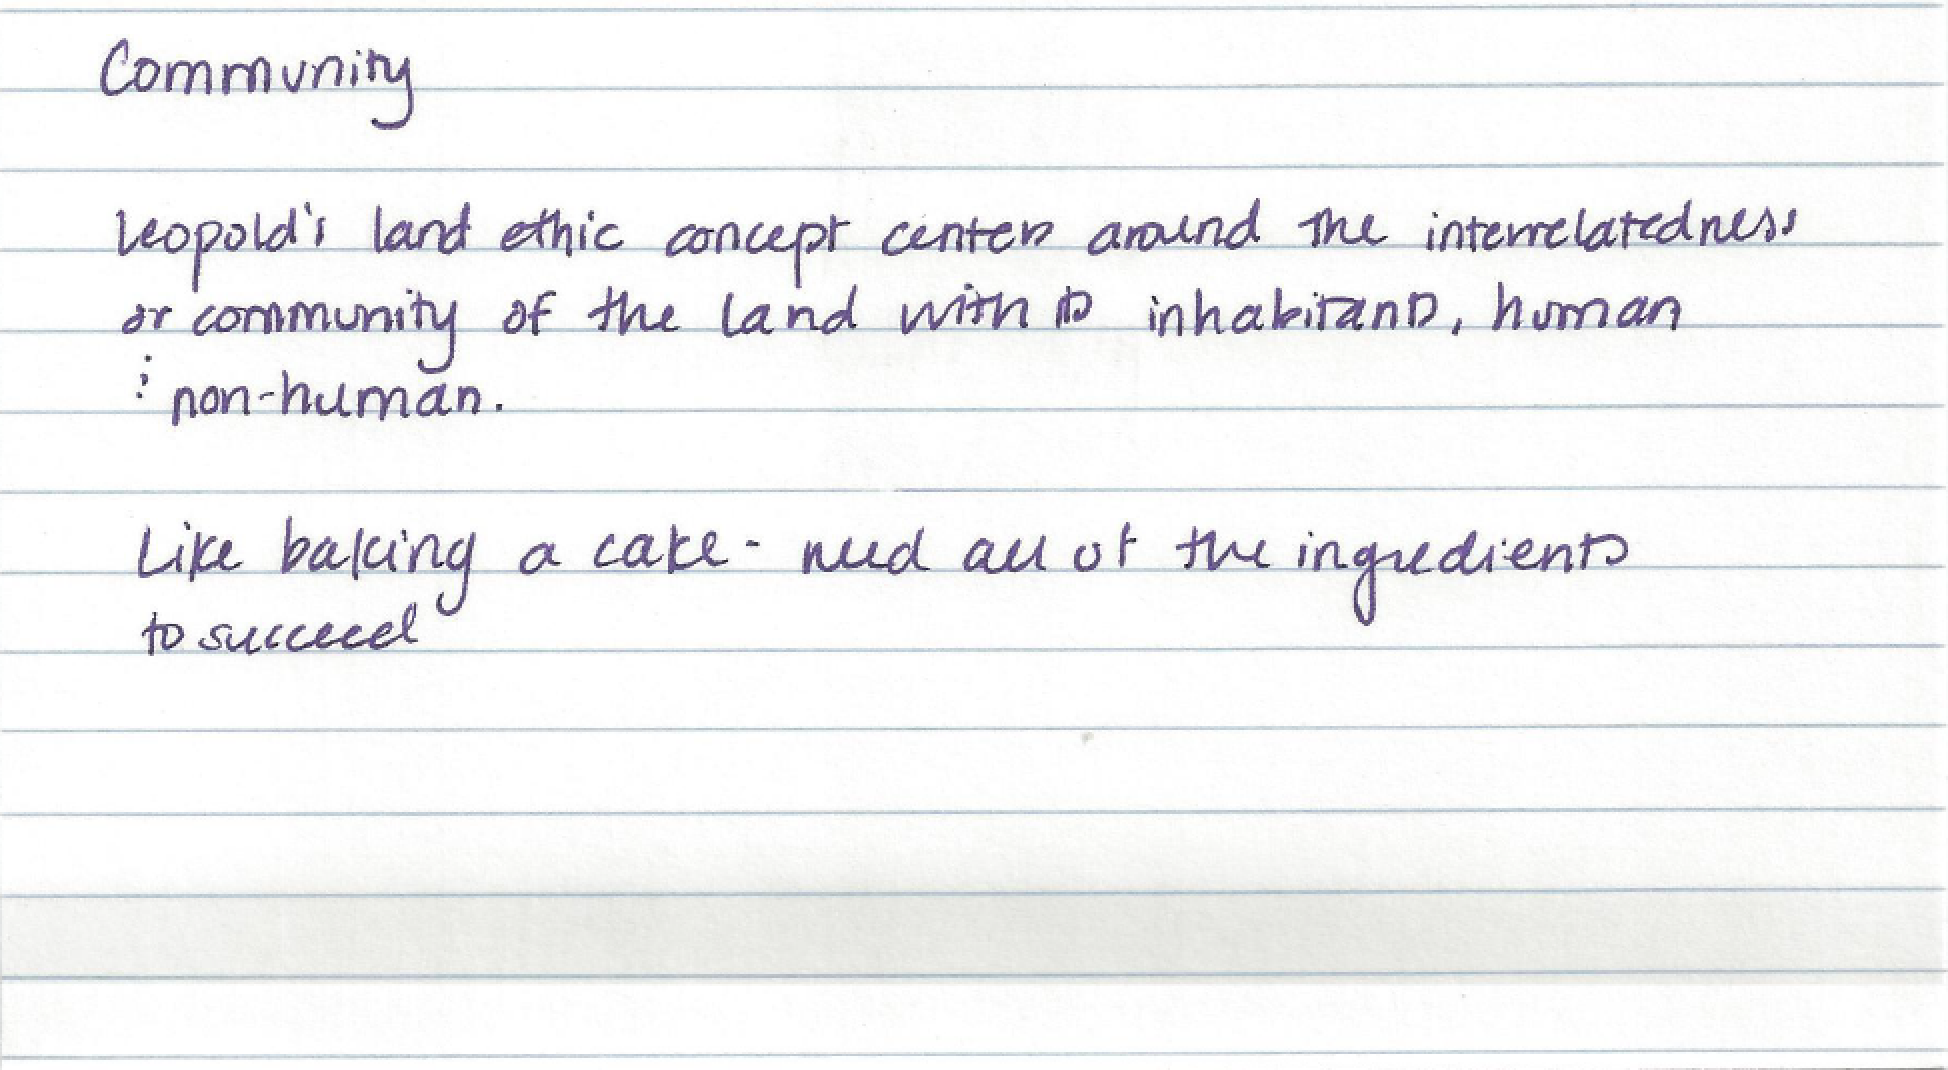 Community
Leopold's land ethic concept centers around the interrelatedness
or community of the land with its inhabitants, human
& non-human.
Like baking a cake - need all of the ingredients
to succeed